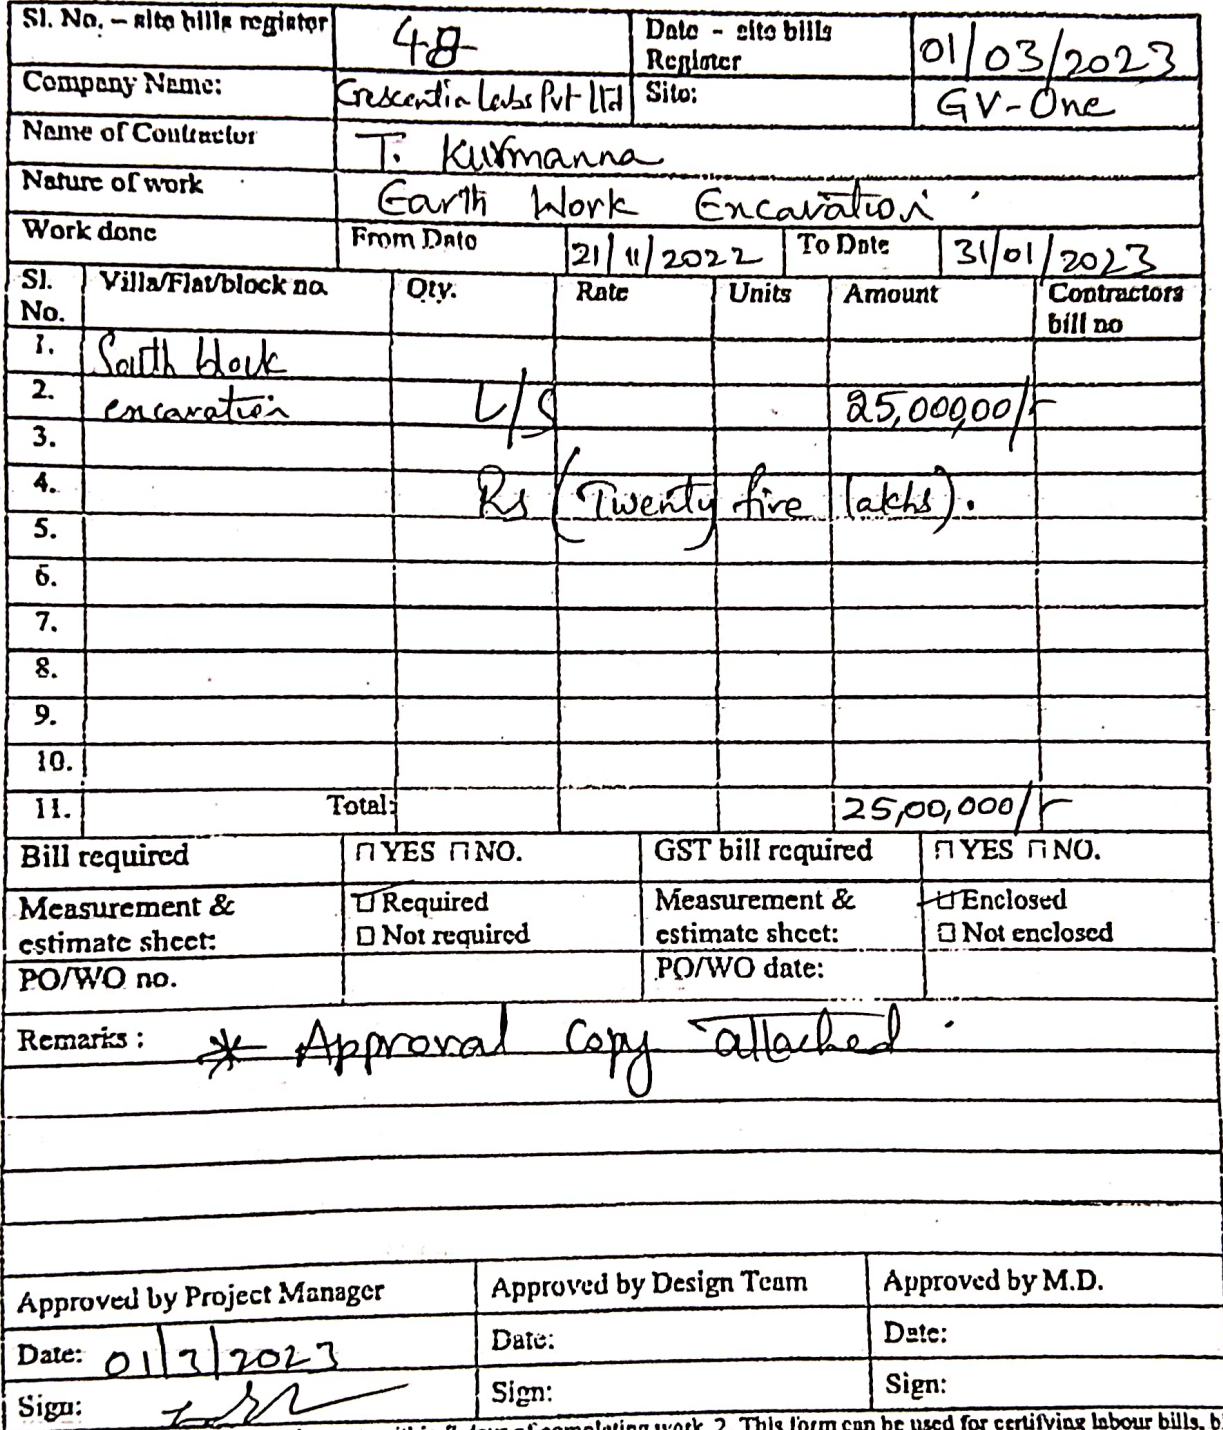 Sl. No. – site bills register 48 Date - site bills Register 01/03/2023
Company Name: Crescentia Labs Pvt Ltd Site: GV-One
Name of Contractor T. Kurmanna
Nature of work Earth Work Encavation
Work done From Date 21/11/2022 To Date 31/01/2023
Sl. No. Villa/Flat/block no. Qty. Rate Units Amount Contractors bill no
1. South block
2. encavation L/S 25,000,00/-
3.
4. Rs (Twenty five lakhs).
5.
6.
7.
8.
9.
10.
11. Total: 25,00,000/-
Bill required YES NO. GST bill required YES NO.
Measurement & estimate sheet: Required Not required Measurement & estimate sheet: Enclosed Not enclosed
PO/WO no. PO/WO date:
Remarks : * Approval Copy attached
Approved by Project Manager Approved by Design Team Approved by M.D.
Date: 01/3/2023 Date: Date:
Sign: Sign: Sign:
of completing work. 2. This form can be used for certifying labour bills,